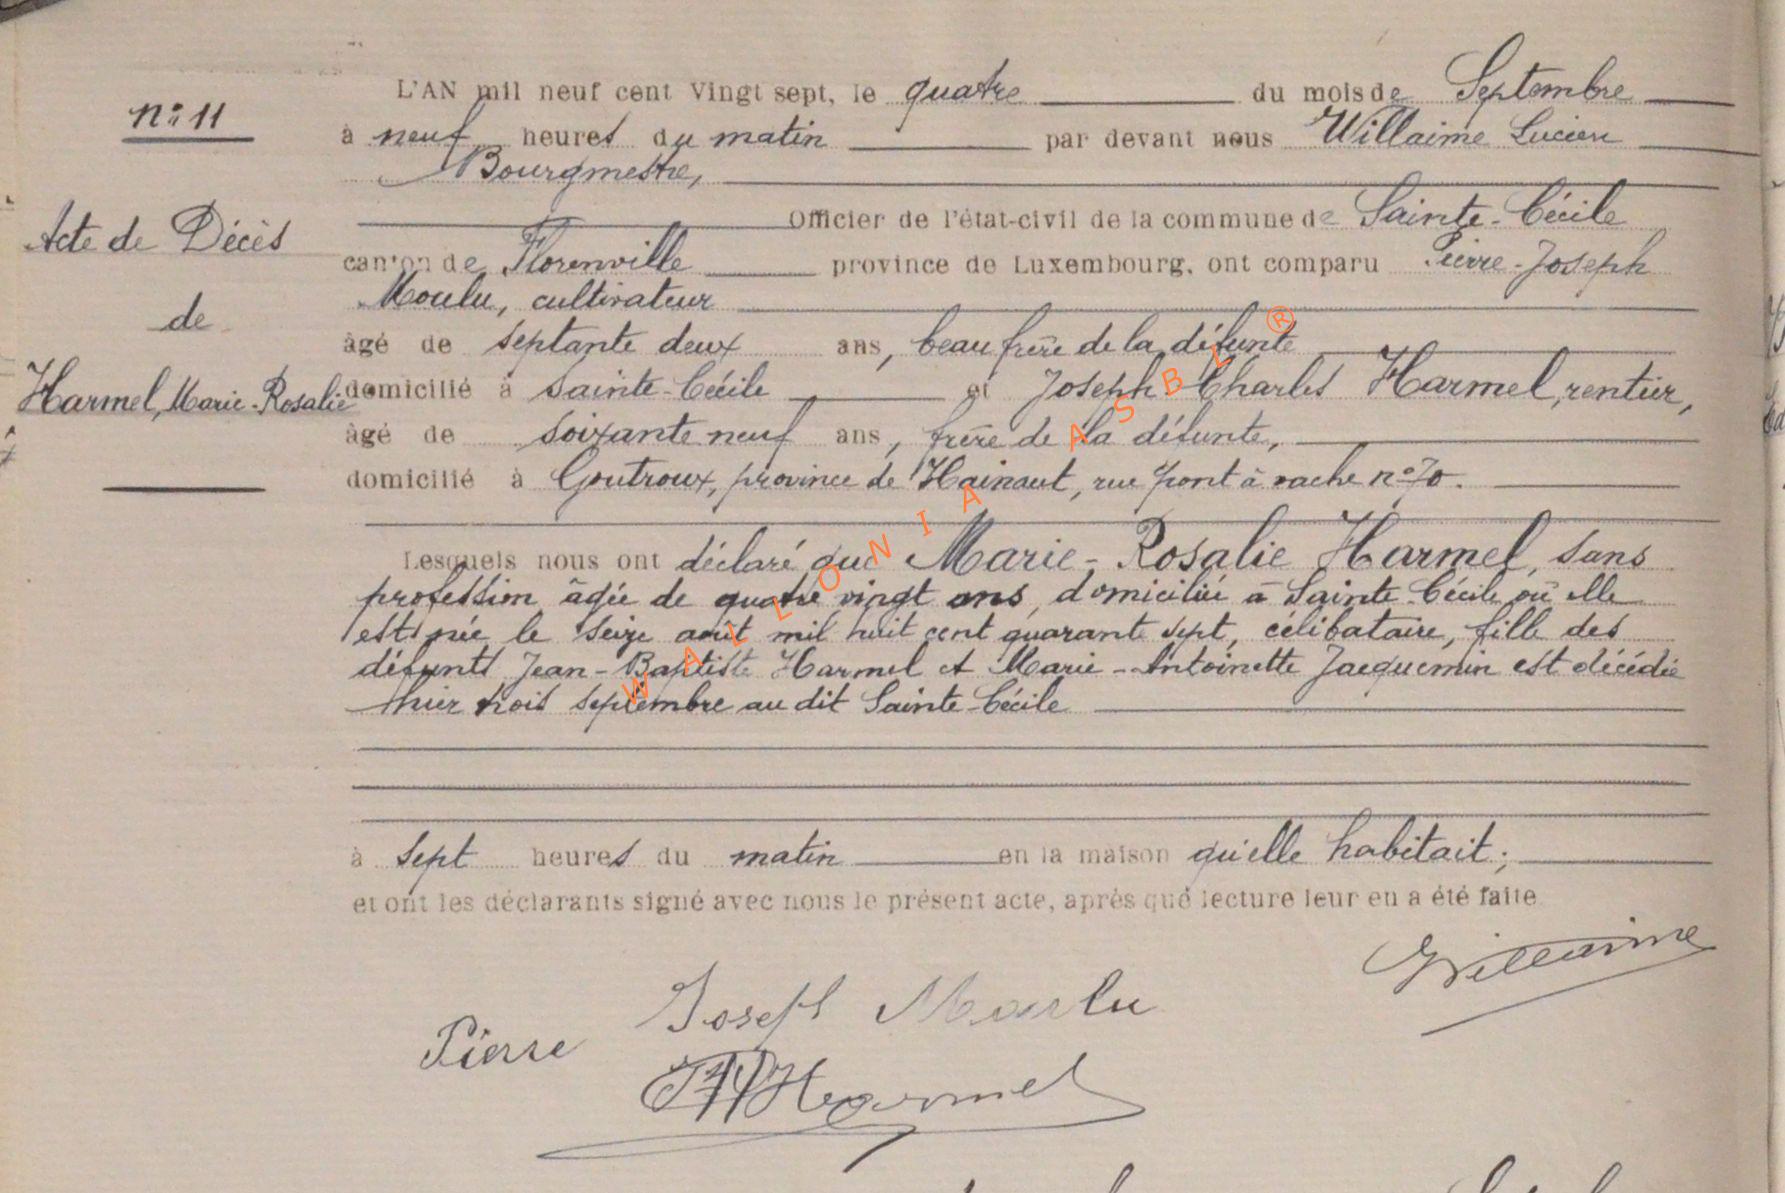 n° 11
Acte de Décès
de
Harmel, Marie-Rosalie
L'AN mil neuf cent Vingt sept, le quatre du mois de Septembre
à neuf heures du matin par devant nous Willaime Lucien
Bourgmestre,
Officier de l'état-civil de la commune de Sainte-Cécile
canton de Florenville province de Luxembourg, ont comparu Pierre-Joseph
Moulu, cultivateur
âgé de septante deux ans, beau frère de la défunte
domicilié à Sainte-Cécile et Joseph-Charles Harmel, rentier,
âgé de soixante neuf ans, frère de la défunte,
domicilié à Goutroux, province de Hainaut, rue pont à vache n° 70.
Lesquels nous ont déclaré que Marie-Rosalie Harmel, sans
profession âgée de quatre vingt ans, domiciliée à Sainte-Cécile où elle
est née le seize août mil huit cent quarante sept, célibataire, fille des
défunts Jean-Baptiste Harmel et Marie-Antoinette Jacquemin est décédée
hier trois septembre au dit Sainte-Cécile
à sept heures du matin en la maison qu'elle habitait;
et ont les déclarants signé avec nous le présent acte, après que lecture leur en a été faite
Willaime
Pierre Joseph Moulu
Harmel
WALLONIA ASBL ®